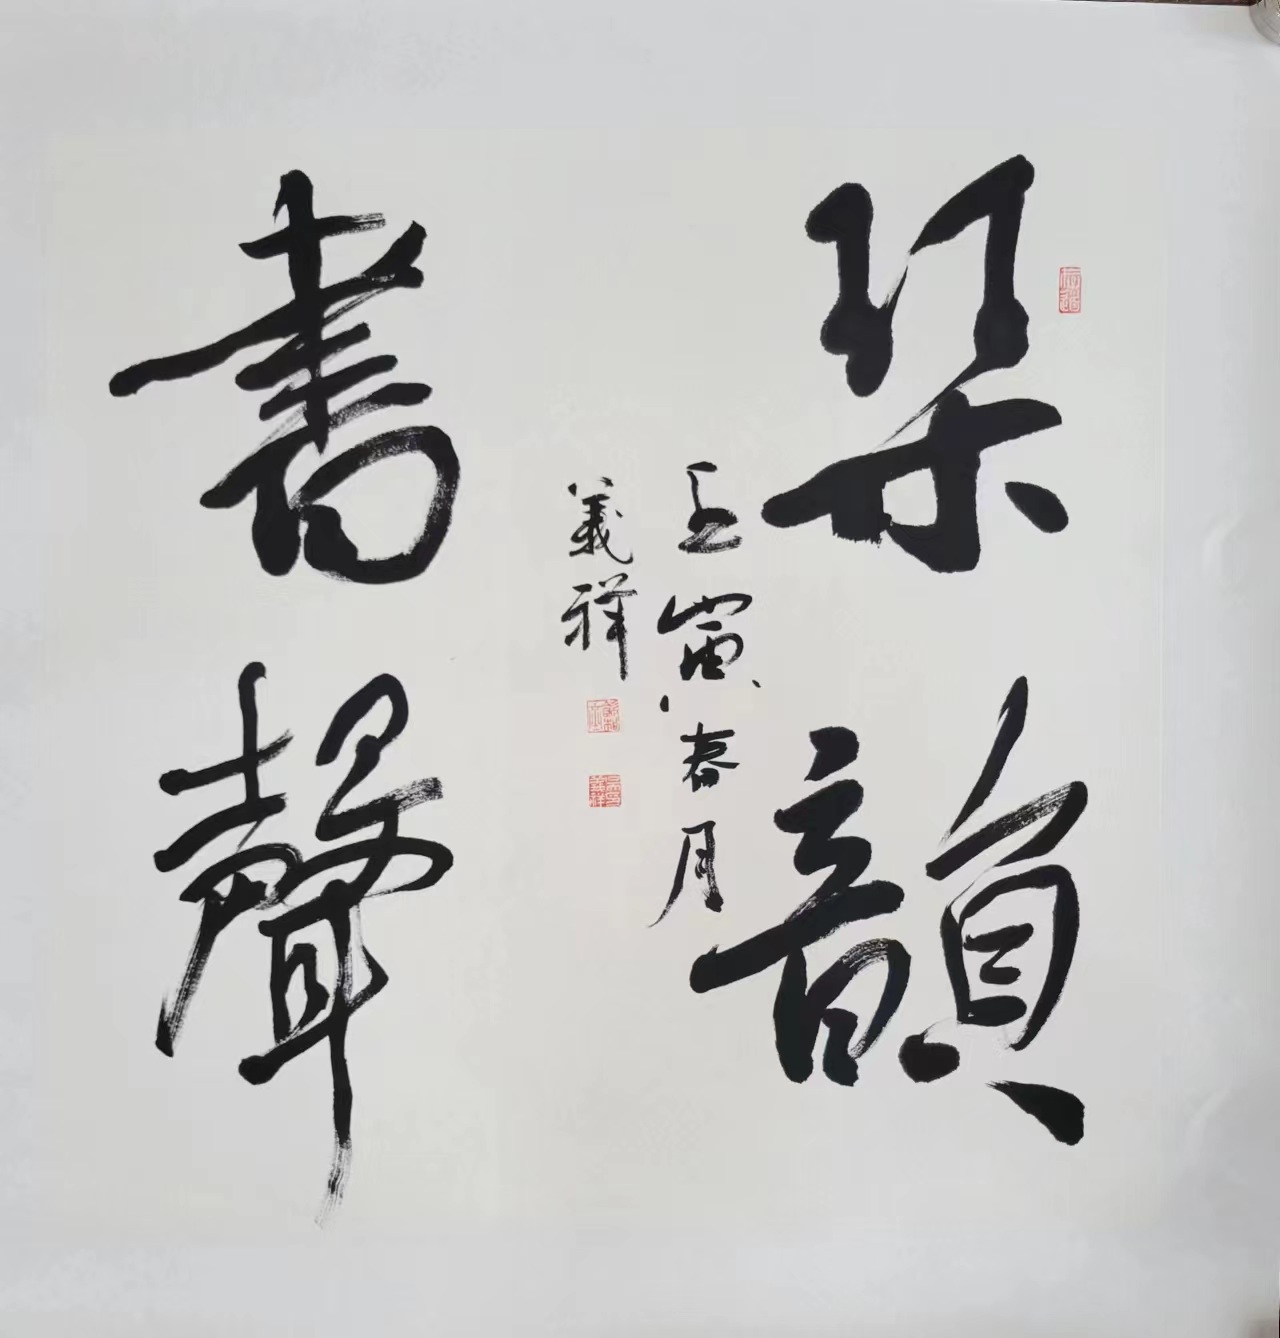 琹韻
書聲
壬寅春月
義祥